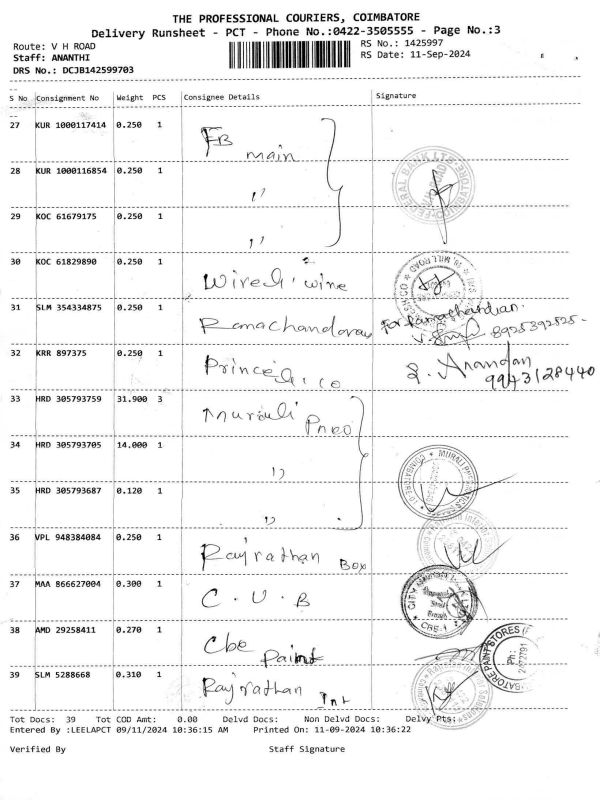 THE PROFESSIONAL COURIERS, COIMBATORE
Delivery Runsheet - PCT - Phone No.:0422-3505555 - Page No.:3
Route: V H ROAD
RS No.: 1425997
Staff: ANANTHI
RS Date: 11-Sep-2024
DRS No.: DCJB142599703
S No Consignment No Weight PCS Consignee Details Signature
27 KUR 1000117414 0.250 1 FB main
28 KUR 1000116854 0.250 1 "
FEDERAL BANK LTD
COIMBATORE
29 KOC 61679175 0.250 1 "
30 KOC 61829890 0.250 1 wine
MILL ROAD
31 SLM 354334875 0.250 1 Ramachandaran for Ramachandian.
8925392525.
32 KRR 897375 0.250 1 Prince & Co Anandan
9943128440
33 HRD 305793759 31.900 3 Murali
34 HRD 305793705 14.000 1 "
MURALI
COIMBATORE
35 HRD 305793687 0.120 1 "
36 VPL 948384084 0.250 1 Rajrathan Box
37 MAA 866627004 0.300 1 C.U.B
CITY
CBE-1
38 AMD 29258411 0.270 1 Cbe Paint
COIMBATORE PAINT STORES
Ph:
39 SLM 5288668 0.310 1 Rajrathan Int
Tot Docs: 39 Tot COD Amt: 0.00 Delvd Docs: Non Delvd Docs: Delvy Pts:
Entered By :LEELAPCT 09/11/2024 10:36:15 AM Printed On: 11-09-2024 10:36:22
Verified By Staff Signature